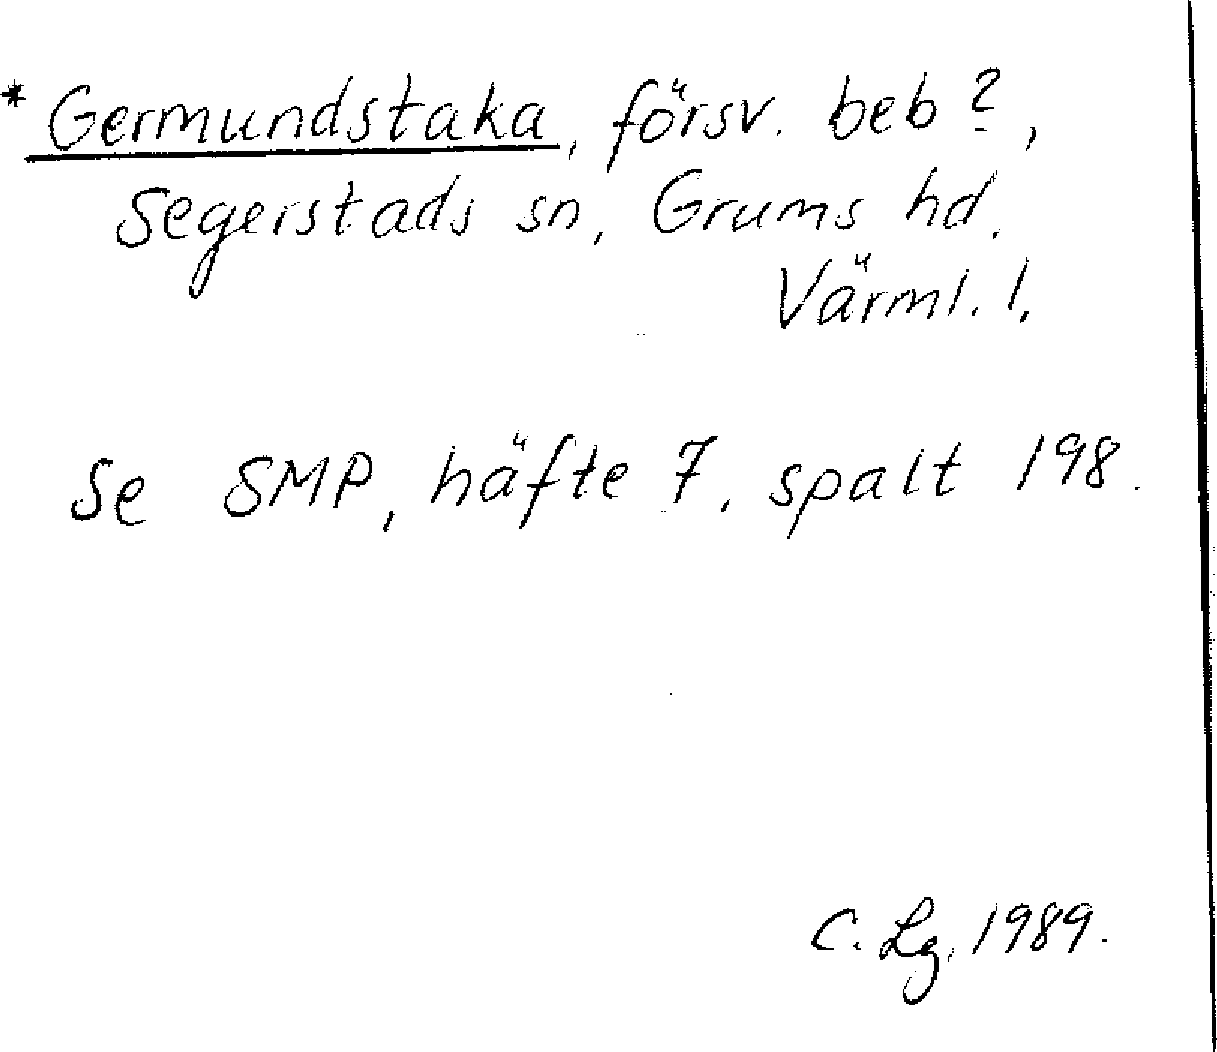 * Germundstaka, försv. beb?,
Segerstads sn, Grums hd.
Värml. l.
Se SMP, häfte 7, spalt 198.
C. Lg, 1989.